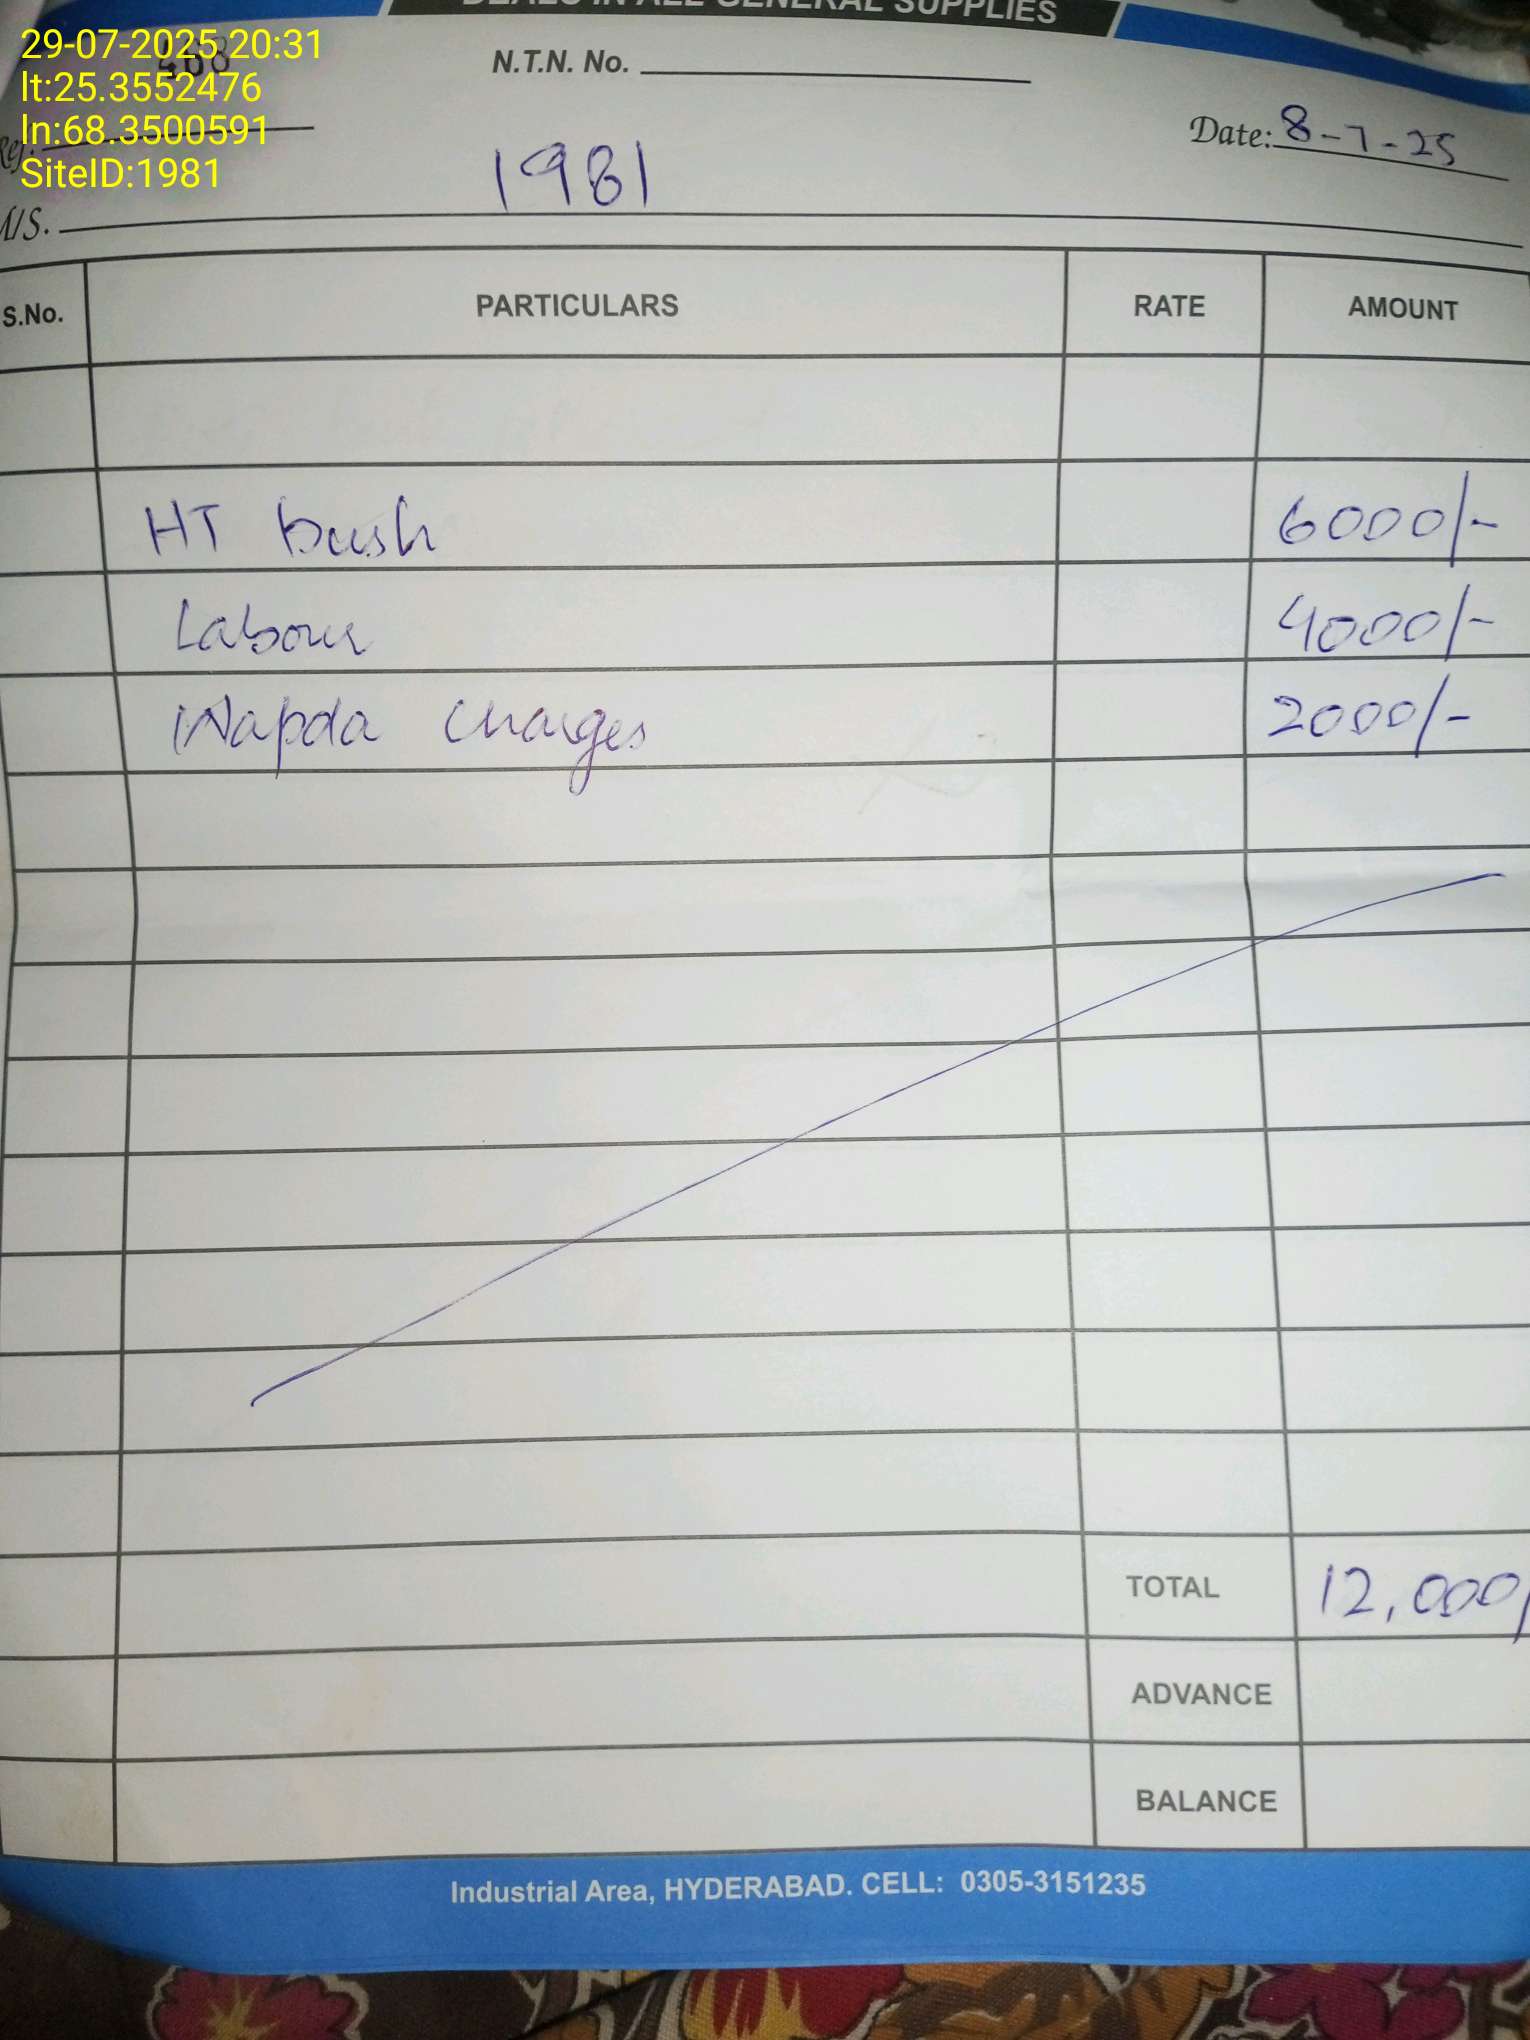 DEALS IN ALL GENERAL SUPPLIES
29-07-2025 20:31
lt:25.3552476
ln:68.3500591
SiteID:1981
468
N.T.N. No.
Ref:
Date: 8-7-25
M/S. 1981
S.No. PARTICULARS RATE AMOUNT
HT bush 6000/-
Labour 4000/-
Wapda Charges 2000/-
TOTAL 12,000/
ADVANCE
BALANCE
Industrial Area, HYDERABAD. CELL: 0305-3151235